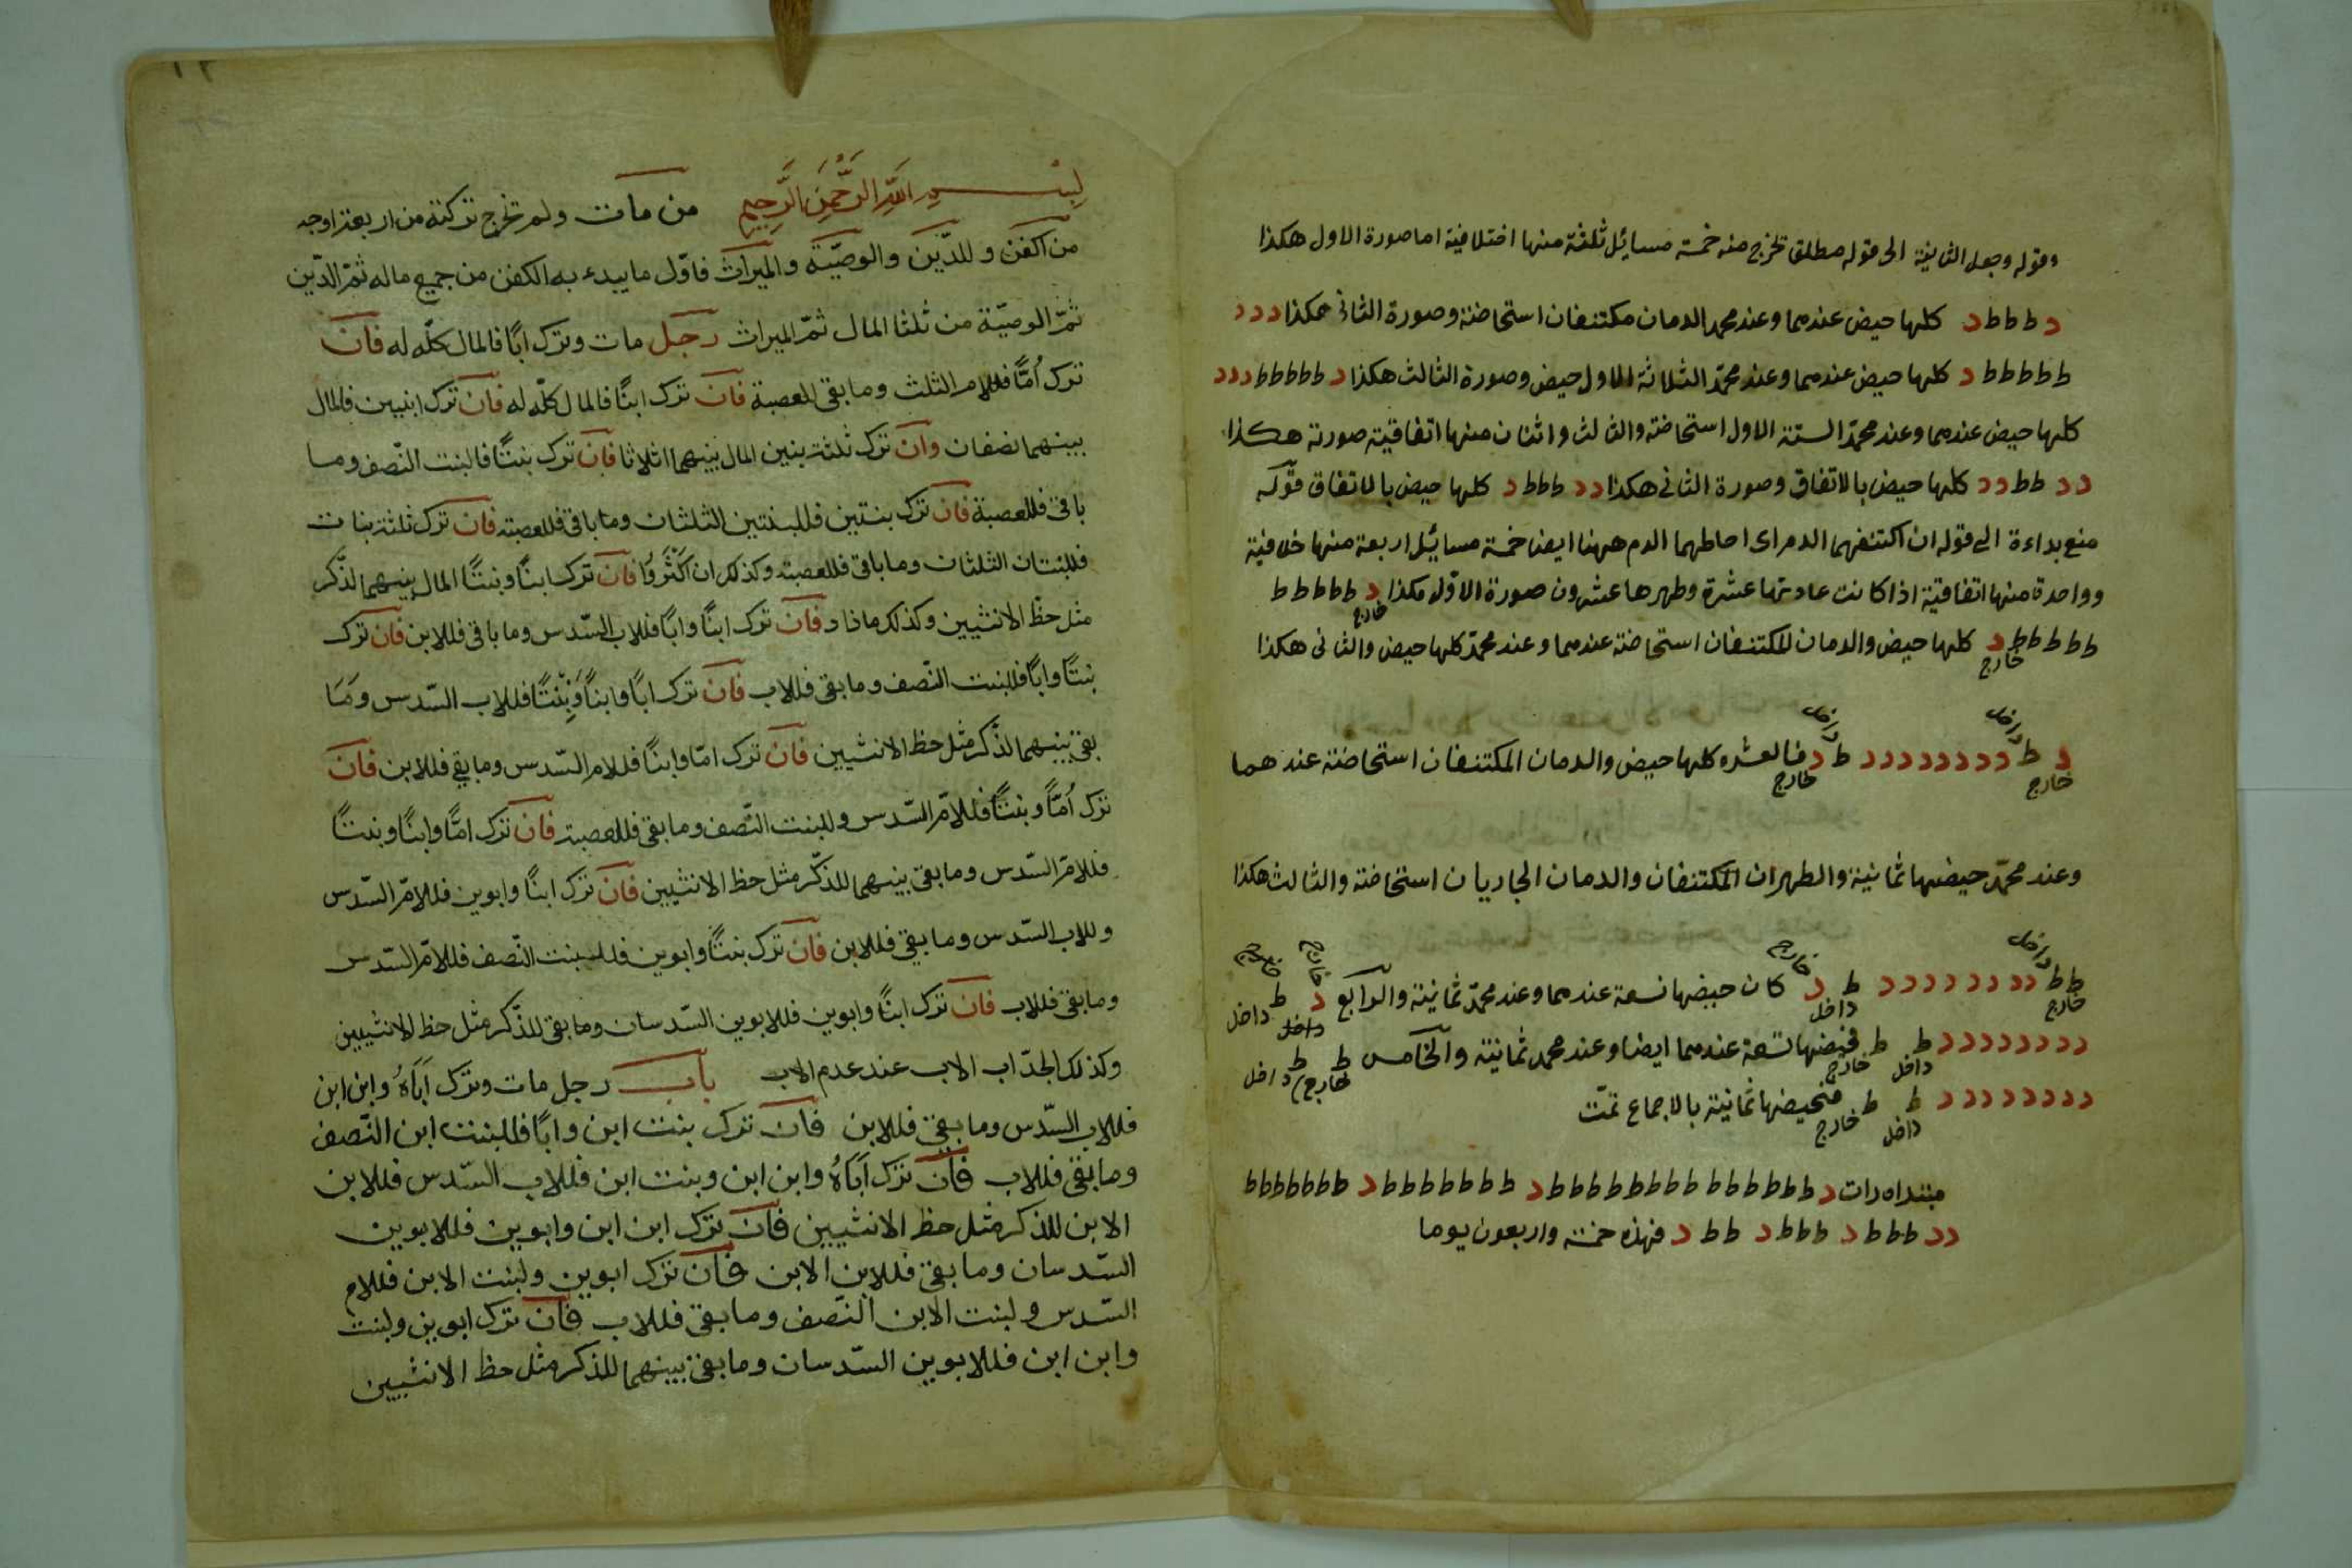 وقوله وجعل الثانية الى قوله مطلق تخرج منه خمسة مسائيل ثلثة منها اختلافية اما صورة الاول هكذا
د ط ط ط د كلها حيض عندهما وعند محمد الدمان مكتنفان استحاضة وصورة الثانى هكذا د د د
ط ط ط ط ط د كلها حيض عندهما وعند محمّد الثلاثة الاول حيض وصورة الثالث هكذا د ط ط ط ط ط د د د
كلها حيض عندهما وعند محمّد الستة الاول استحاضة والثالث واثنان منها اتفاقية صورته هكذا
د د ط ط د د كلها حيض بالاتفاق وصورة الثانى هكذا د د ط ط ط د كلها حيض بالاتفاق قوله
منع بداءة الى قوله ان اكتنفهما الدم اى احاطهما الدم ههنا ايضا خمسة مسائيل اربعة منها خلافية
وواحدة منها اتفاقية اذا كانت عادتها عشرة وطهرها عشرون صورة الاوّل هكذا د ط ط ط ط ط
خارج
ط ط ط ط ط د كلها حيض والدمان المكتنفان استحاضة عندهما وعند محمّد كلها حيض والثانى هكذا
خارج
داخل داخل
د ط د د د د د د د د ط د فالعشره كلها حيض والدمان المكتنفان استحاضة عندهما
خارج خارج
وعند محمّد حيضها ثمانية والطهران المكتنفان والدمان الجاريان استحاضة والثالث هكذا
داخل خارج خارج خارج
ط ط د د د د د د د د ط د كان حيضها تسعة عندهما وعند محمّد ثمانية والرابع د ط
خارج داخل داخل داخل
د د د د د د د د ط ط فحيضها تسعة عندهما ايضا وعند محمد ثمانية والخامس ط ط
داخل خارج خارج داخل
د د د د د د د د ط ط فحيضها ثمانية بالاجماع تمّت
داخل خارج
مبتداه رات د ط ط ط ط ط ط ط ط ط ط ط ط ط ط د ط ط ط ط ط ط ط ط د ط ط ط ط ط ط ط
د د ط ط ط د ط ط ط د ط ط د فهذه خمسة واربعون يوما
بسم الله الرحمن الرحيم من مات ولم تخرج تركته من اربعة اوجه
من اكفن وللدّين والوصيّة والميراث فاوّل ما يبدء به الكفن من جميع ماله ثمّ الدّين
ثمّ الوصيّة من ثلثا المال ثمّ الميراث رجل مات وترك ابًا فالمال كلّه له فان
ترك اُمًّا فللام الثلث وما بقى للعصبة فان ترك ابنًا فالمال كلّه له فان ترك ابنيين فالمال
بينهما نصفان وان ترك ثلثة بنين المال بينهما اثلاثا فان ترك بنتًا فالبنت النّصف وما
باقى فللعصبة فان ترك بنتين فللبنتين الثلثان وما باقى فللعصبته فان ترك ثلثة بنات
فللبنتان الثلثان وما باقى فللعصبته وكذلك ان اكثروا فان ترك ابنًا وبنتًا المال بينهما لذّكر
مثل حظّ الانثيين وكذلك ماذاد فان ترك ابنًا وابًا فللاب السّدس وما باقى فللابن فان ترك
بنتًا وابًا فللبنت النّصف وما بقى فللاب فان ترك ابًا وابنًا وبنتًا فللاب السّدس وما
بقى بينهما لذّكر مثل حظ الانثيين فان ترك امّا وابنًا فللام السّدس وما بقى فللابن فان
ترك اُمًّا وبنتًا فللامّ السّدس وللبنت النّصف وما بقى فللعصبته فان ترك امًّا وابنًا وبنتًا
فللامّ السّدس وما بقى بينهما للذكّر مثل حظ الانثيين فان ترك ابنًا وابوين فللامّ السّدس
وللاب السّدس وما بقى فللابن فان ترك بنتًا وابوين فللبنت النّصف فللامّ السّدس
وما بقى فللاب فان ترك ابنًا وابوين فللابوين السّدسان وما بقى للذّكر مثل حظ الانثيين
وكذلك الجدّ اب الاب عند عدم الاب باب رجل مات وترك اَبَاهُ وابن ابن
فللاب السّدس وما بقى فللابن فان ترك بنت ابن وابًا فللبنت ابن النّصف
وما بقى فللاب فان ترك اَبَاهُ وابن ابن وبنت ابن فللاب السّدس فللابن
الابن للذكر مثل حظ الانثيين فان ترك ابن ابن وابوين فللابوين
السّدسان وما بقى فللابن الابن فان ترك ابوين ولبنت الابن فللام
السّدس ولبنت الابن النّصف وما بقى فللاب فان ترك ابوين ولبنت
وابن ابن فللابوين السّدسان وما بقى بينهما للذكر مثل حظ الانثيين